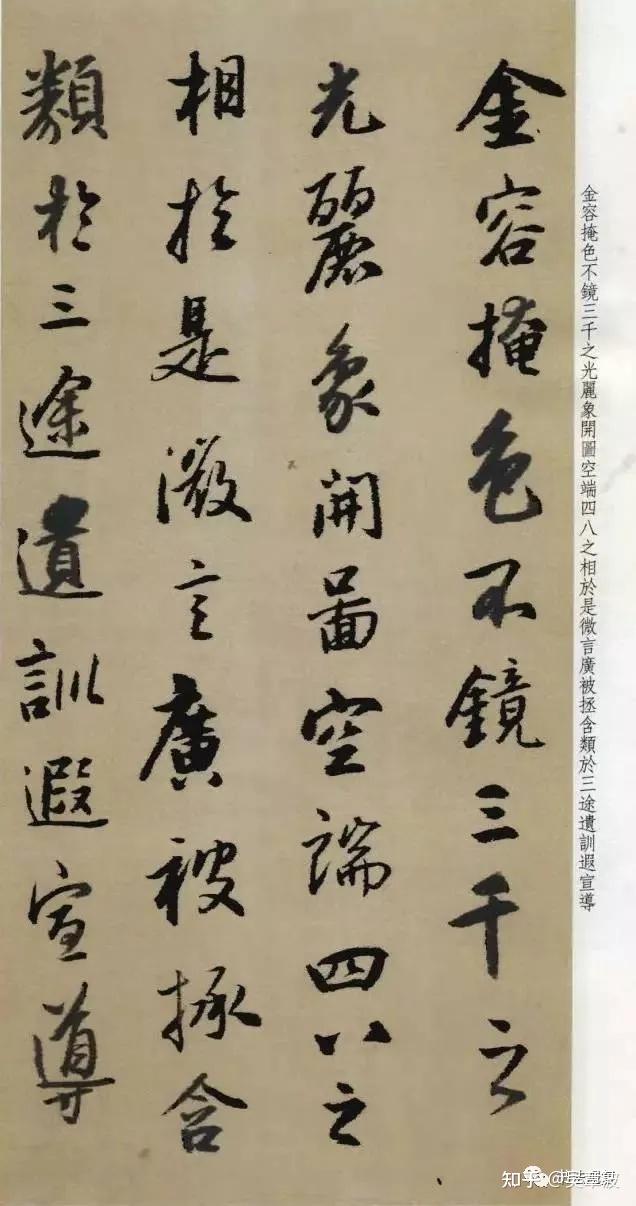 金容掩色不鏡三千之
光麗象開圖空端四八之
相於是微言廣被拯含
類於三途遺訓遐宣導
金容掩色不鏡三千之光麗象開圖空端四八之相於是微言廣被拯含類於三途遺訓遐宣導
知乎